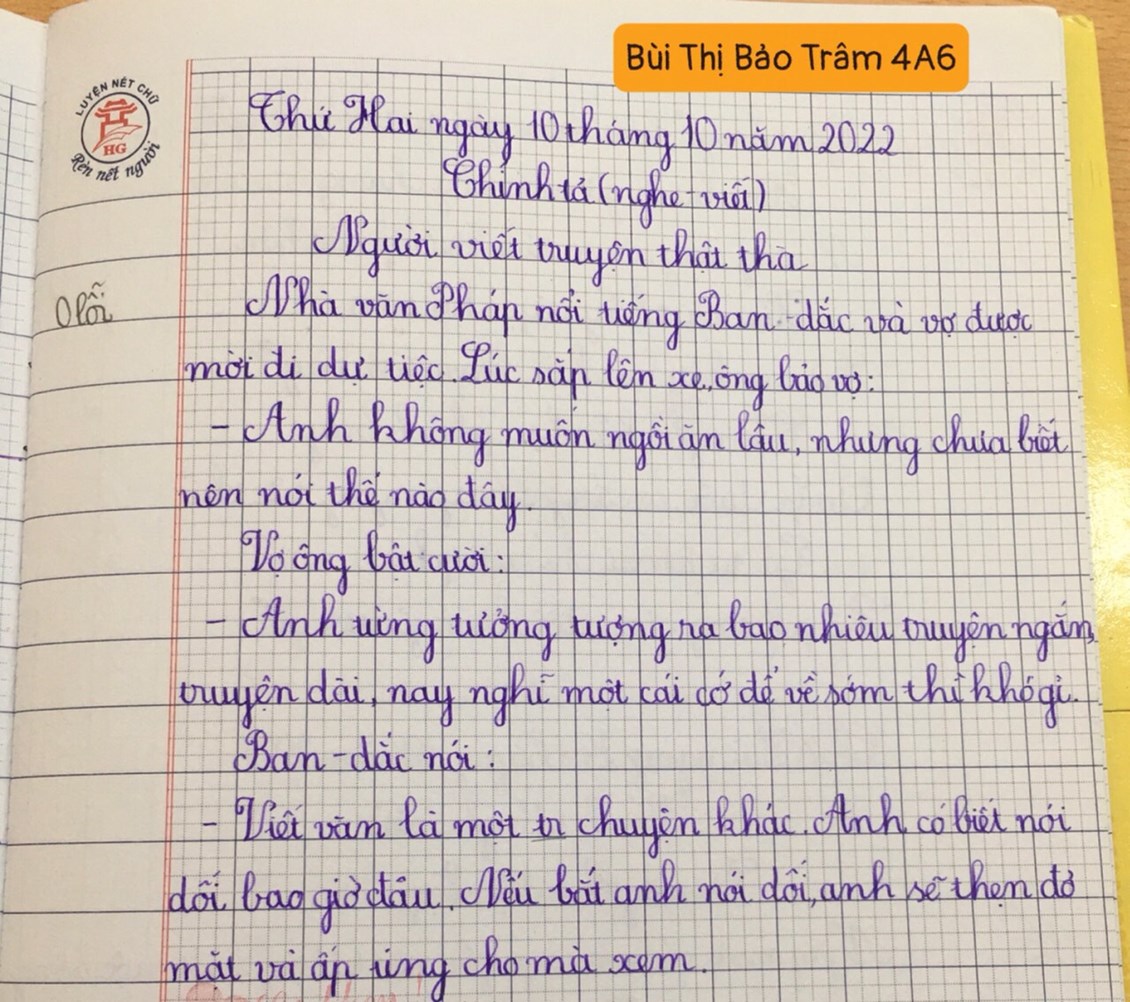 Bùi Thị Bảo Trâm 4A6
LUYỆN NÉT CHỮ
HG
Rèn nết người
Thứ Hai ngày 10 tháng 10 năm 2022
Chính tả (nghe-viết)
Người viết truyện thật thà
0 lỗi
Nhà văn Pháp nổi tiếng Ban-dắc và vợ được
mời đi dự tiệc. Lúc sắp lên xe, ông bảo vợ:
- Anh không muốn ngồi ăn lâu, nhưng chưa biết
nên nói thế nào đây.
Vợ ông bật cười:
- Anh từng tưởng tượng ra bao nhiêu truyện ngắn,
truyện dài, nay nghĩ một cái cớ để về sớm thì khó gì.
Ban-dắc nói:
- Viết văn là một tr chuyện khác. Anh có biết nói
dối bao giờ đâu. Nếu bắt anh nói dối, anh sẽ thẹn đỏ
mặt và ấp úng cho mà xem.